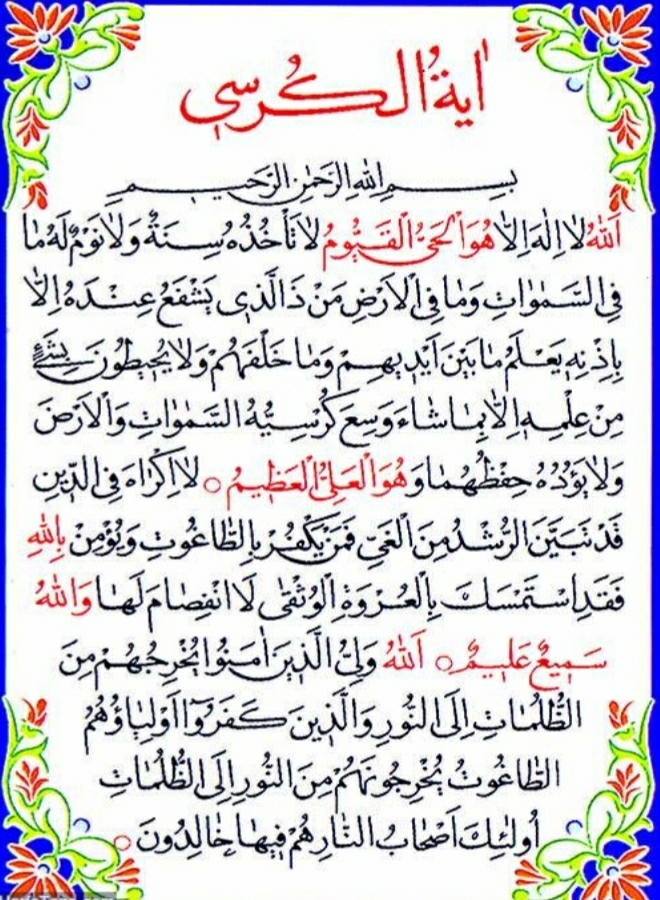 اٰیةُ الکُرسي
بِسْمِ اللهِ الرَّحْمٰنِ الرَّحیمِ
اَللهُ لا اِلٰهَ اِلاّٰ هُوَ الْحَيُّ الْقَیُّومُ لا تَأْخُذُهُ سِنَةٌ وَلا نَوْمٌ لَهُ مٰا
فِي السَّمٰوٰاتِ وَمٰا فِي الْاَرْضِ مَنْ ذَا الَّذي یَشْفَعُ عِنْدَهُ اِلاّٰ
بِاِذْنِهِ یَعْلَمُ مٰا بَیْنَ اَیْدیهِمْ وَمٰا خَلْفَهُمْ وَلا یُحیطُونَ بِشَيْءٍ
مِنْ عِلْمِهِ اِلاّٰ بِمٰا شٰاءَ وَسِعَ کُرْسِیُّهُ السَّمٰوٰاتِ وَالْاَرْضَ
وَلا یَؤُدُهُ حِفْظُهُمٰا وَهُوَ الْعَلِيُّ الْعَظیمُ ○ لا اِکْرٰاهَ فِي الدّینِ
قَدْ تَبَیَّنَ الرُّشْدُ مِنَ الْغَيِّ فَمَنْ یَکْفُرْ بِالطّٰاغُوتِ وَیُؤْمِنْ بِاللهِ
فَقَدِ اسْتَمْسَكَ بِالْعُرْوَةِ الْوُثْقٰی لَا انْفِصٰامَ لَهٰا وَاللهُ
سَمیعٌ عَلیمٌ ○ اَللهُ وَلِيُّ الَّذینَ اٰمَنُوا یُخْرِجُهُمْ مِنَ
الظُّلُمٰاتِ اِلَی النُّورِ وَالَّذینَ کَفَرُوا اَوْلِیٰاؤُهُمُ
الطّٰاغُوتُ یُخْرِجُونَهُمْ مِنَ النُّورِ اِلَی الظُّلُمٰاتِ
اُولٰئِكَ اَصْحٰابُ النّٰارِ هُمْ فیهٰا خٰالِدُونَ ○